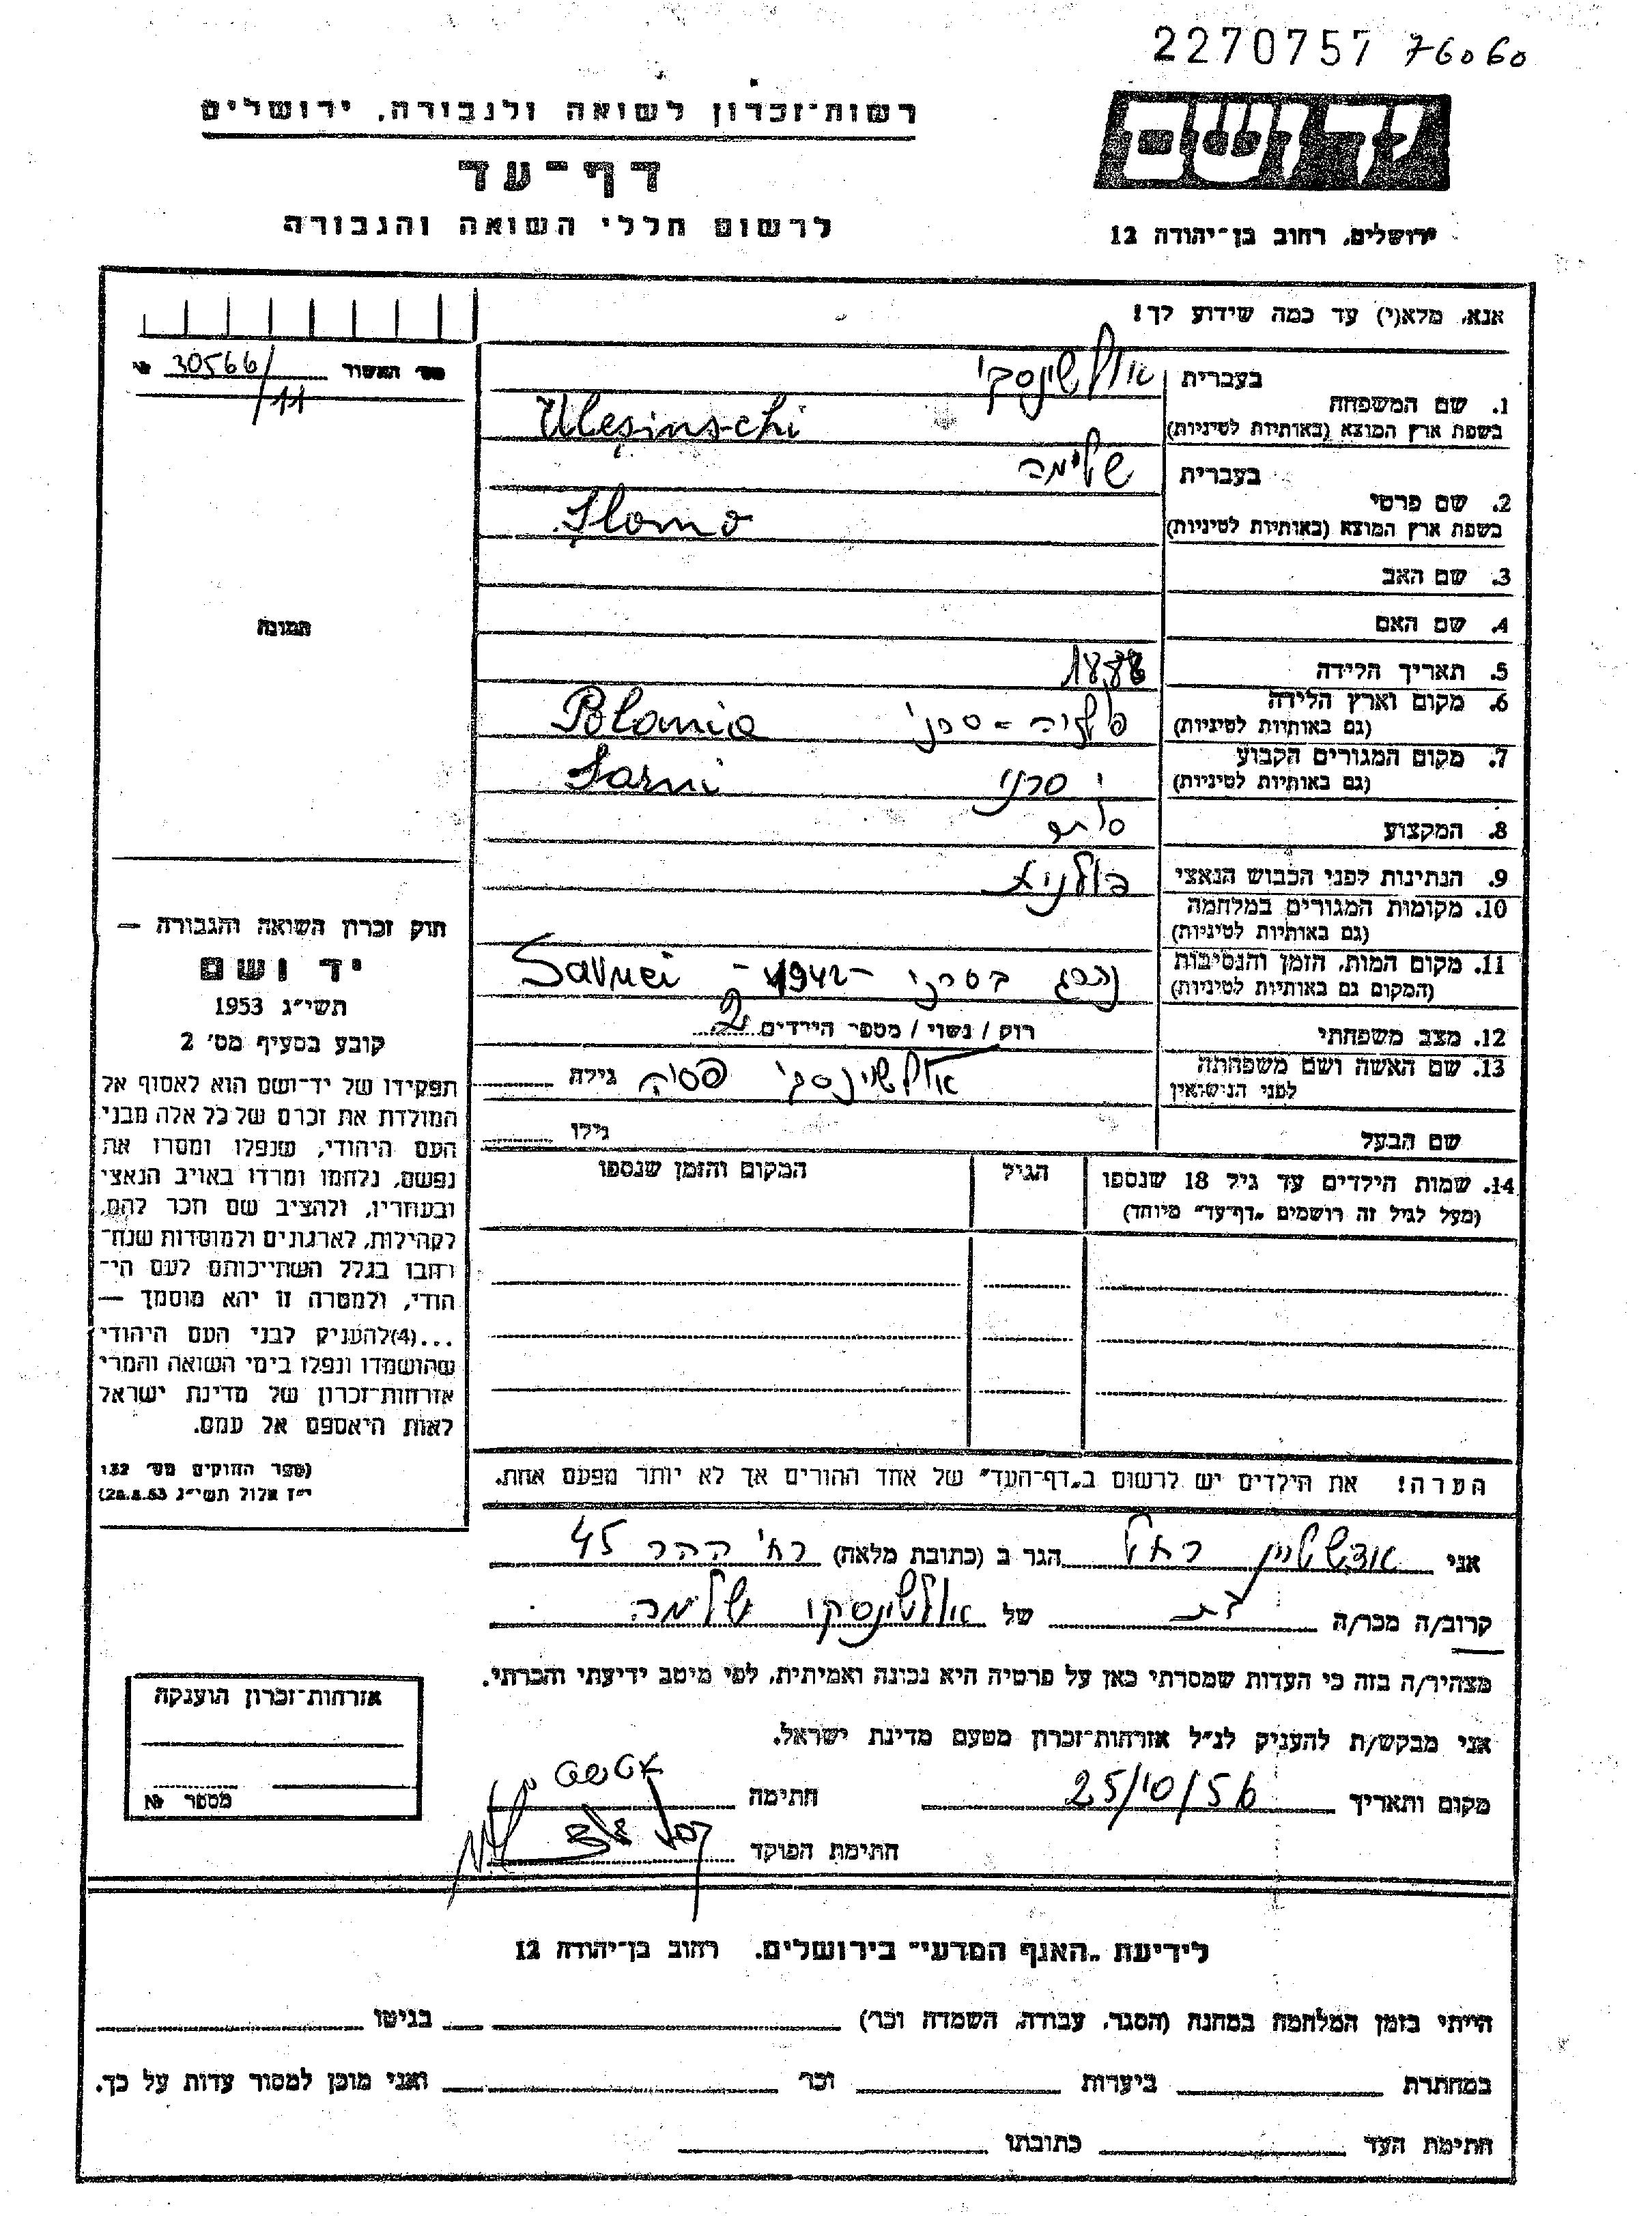 2270757 76060
רשות־זכרון לשואה ולגבורה, ירושלים
יד ושם
דף־עד
לרשום חללי השואה והגבורה
ירושלים, רחוב בן־יהודה 12
אנא, מלא(י) עד כמה שידוע לך!
מס' האשור № 30566/11
1. שם המשפחה בעברית אולשינסקי
בשפת ארץ המוצא (באותיות לטיניות) Uleşinschi
2. שם פרטי בעברית שלימה
בשפת ארץ המוצא (באותיות לטיניות) Şlomo
3. שם האב
4. שם האם
התמונה
5. תאריך הלידה
6. מקום וארץ הלידה פולניה - סרני Polania
(גם באותיות לטיניות)
7. מקום המגורים הקבוע סרני Sarni
(גם באותיות לטיניות)
8. המקצוע סוחר
9. הנתינות לפני הכבוש הנאצי פולנית
10. מקומות המגורים במלחמה
(גם באותיות לטיניות)
11. מקום המות, הזמן והנסיבות נהרג בסרני -1942-
(המקום גם באותיות לטיניות)
12. מצב משפחתי רוק / נשוי / מספר הילדים 2
13. שם האשה ושם משפחתה אולשינסקי פסיה גילה
לפני הנישואין
שם הבעל גילו
14. שמות הילדים עד גיל 18 שנספו הגיל המקום והזמן שנספו
(מעל לגיל זה רושמים „דף־עד" מיוחד)
חוק זכרון השואה והגבורה —
יד ושם
תשי״ג 1953
קובע בסעיף מס׳ 2
תפקידו של יד־ושם הוא לאסוף אל
המולדת את זכרם של כל אלה מבני
העם היהודי, שנפלו ומסרו את
נפשם, נלחמו ומרדו באויב הנאצי
ובעוזריו, ולהציב שם וזכר להם,
לקהילות, לארגונים ולמוסדות שנח־
רבו בגלל השתייכותם לעם הי־
הודי, ולמטרה זו יהא מוסמך —
...(4)להעניק לבני העם היהודי
שהושמדו ונפלו בימי השואה והמרי
אזרחות־זכרון של מדינת ישראל
לאות היאספם אל עמם.
(ספר החוקים מס׳ 132
י״ז אלול תשי״ג 28.8.53)
הערה! את הילדים יש לרשום ב„דף־העד" של אחד ההורים אך לא יותר מפעם אחת.
אני רחל הגר ב (כתובת מלאה) רח' ההר 45
קרוב/ה מכר/ה בת של אולשינסקי שלימה
מצהיר/ה בזה כי העדות שמסרתי כאן על פרטיה היא נכונה ואמיתית, לפי מיטב ידיעתי והכרתי.
אני מבקש/ת להעניק לנ״ל אזרחות־זכרון מטעם מדינת ישראל.
מקום ותאריך 25/10/56 חתימה
חתימת הפוקד
אזרחות־זכרון הוענקה
מספר №
לידיעת „האגף המדעי" בירושלים, רחוב בן־יהודה 12
הייתי בזמן המלחמה במחנה (הסגר, עבודה, השמדה וכר׳) בגיטו
במחתרת ביערות וכר׳ ואני מוכן למסור עדות על כך.
חתימת העד כתובתו